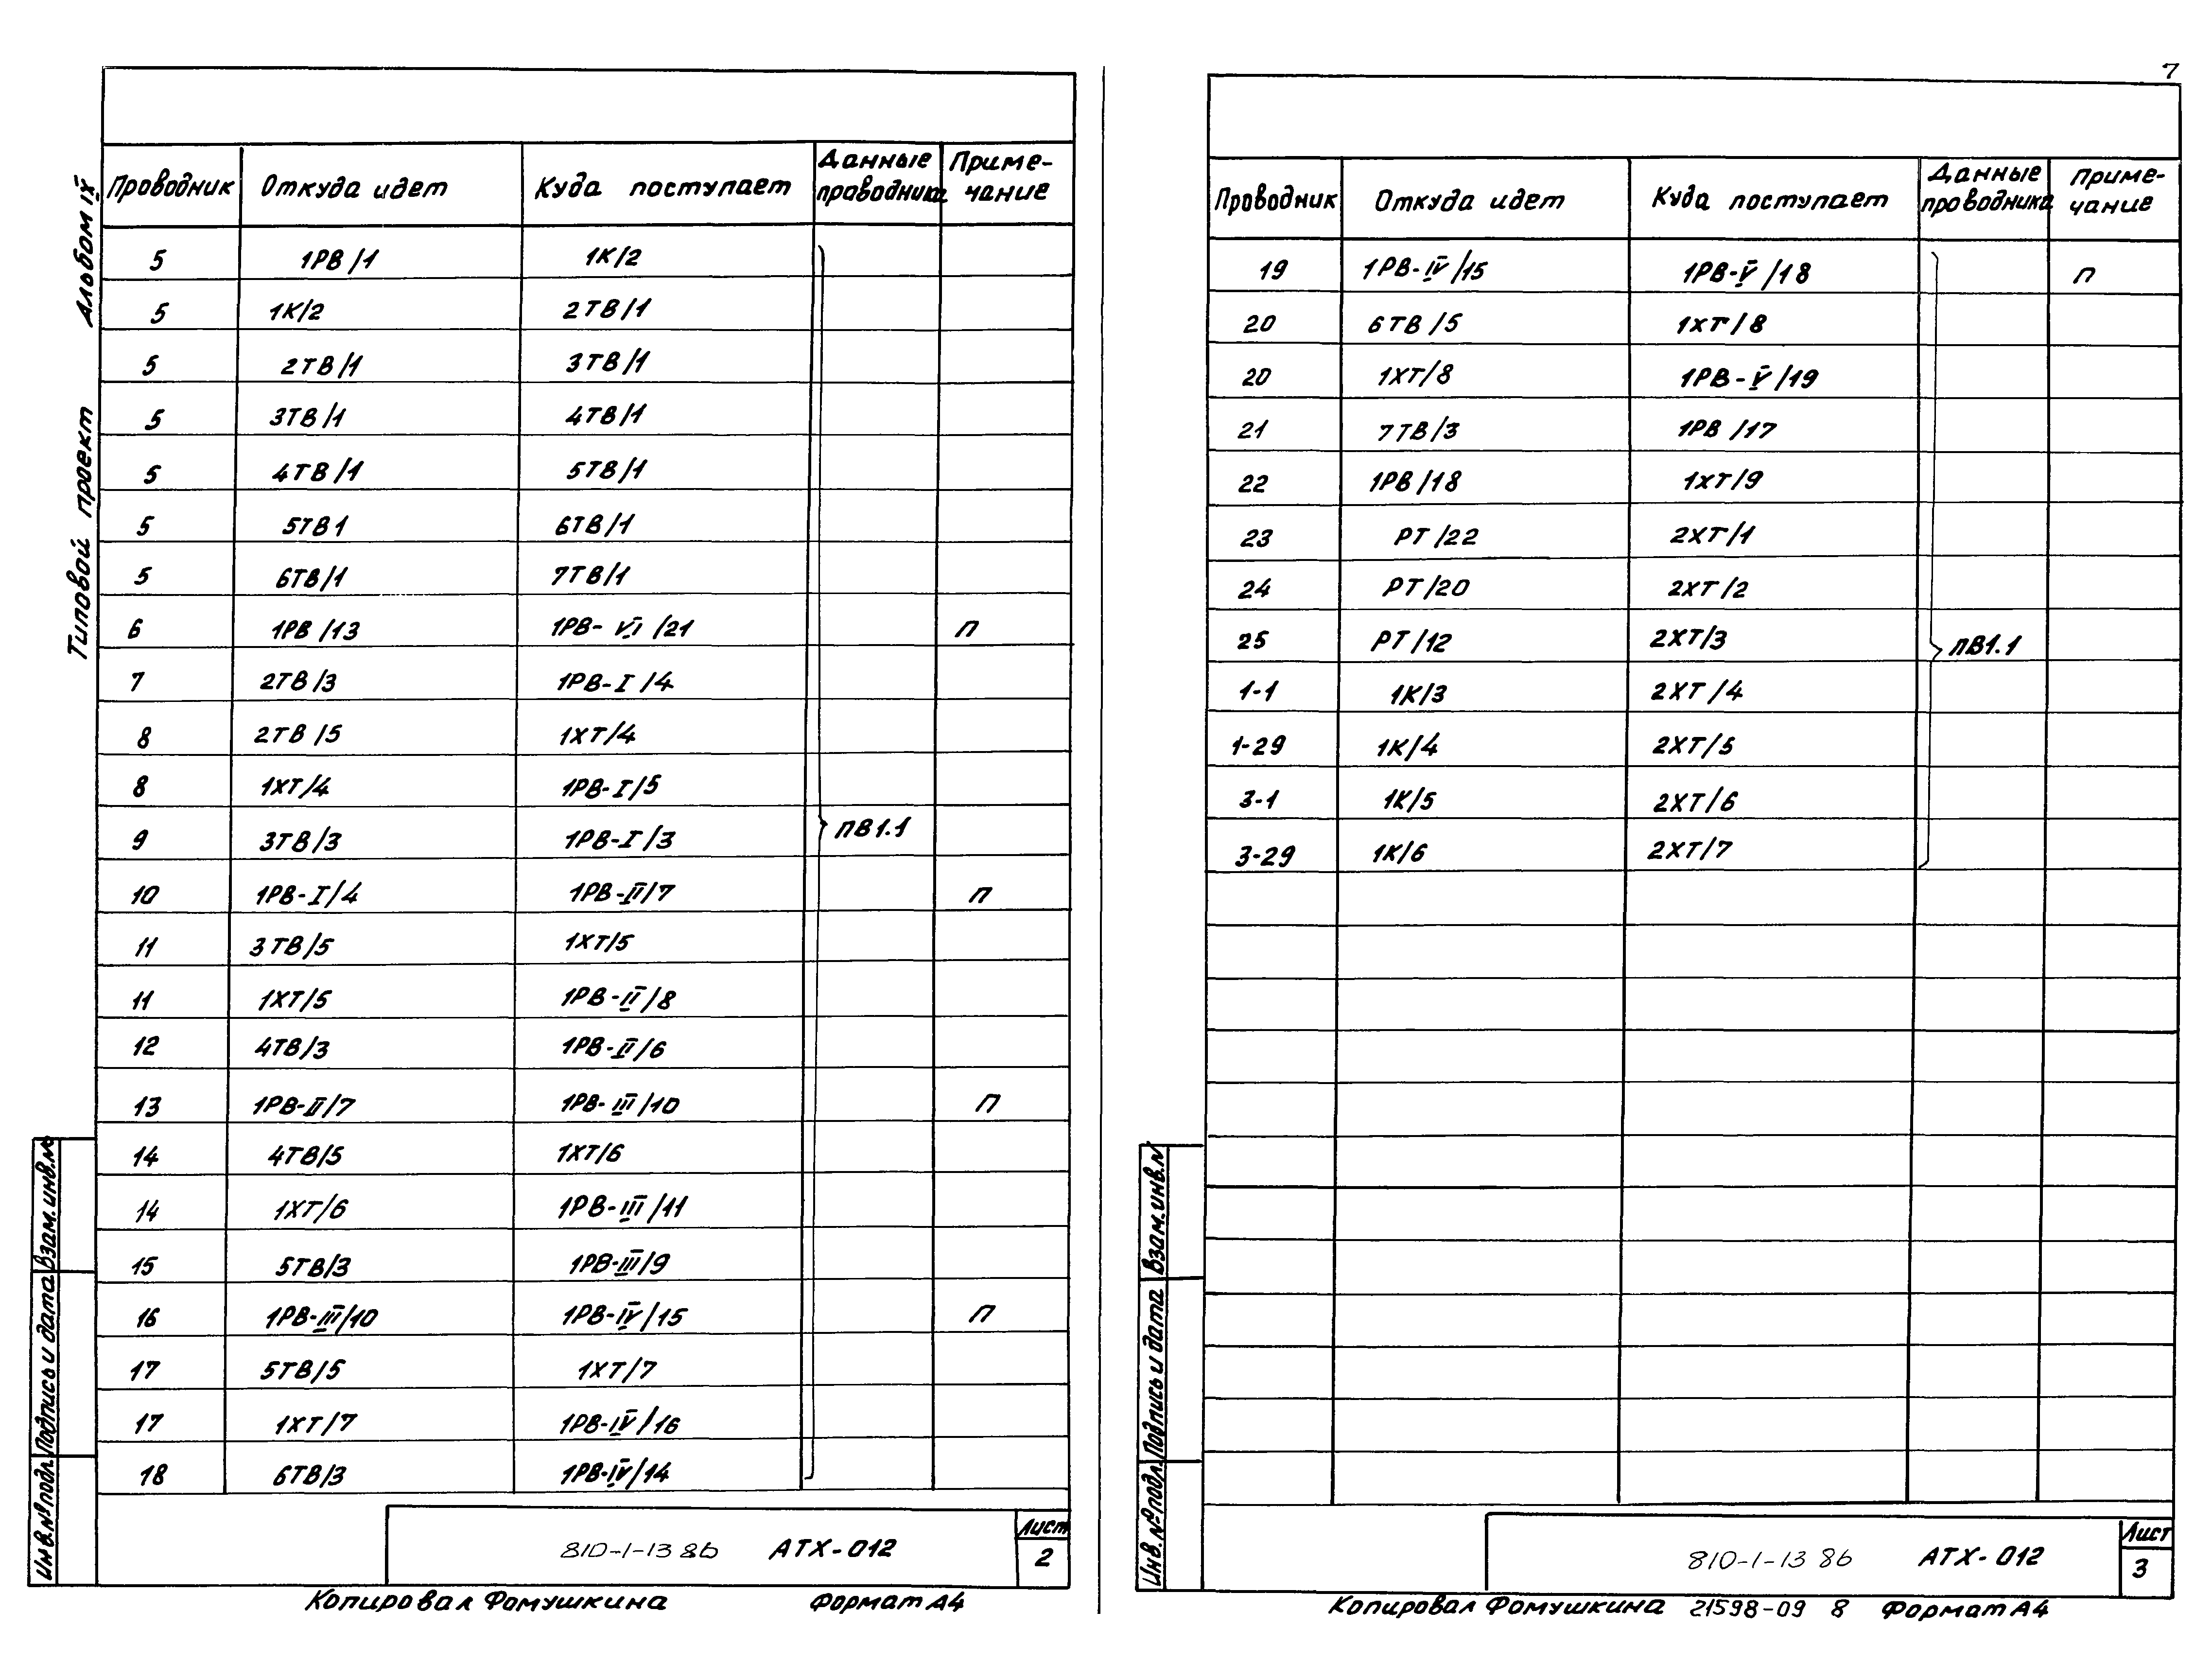 7
Типовой проект Альбом IX
Проводник Откуда идет Куда поступает Данные проводника Приме-чание
5 1РВ/1 1К/2
5 1К/2 2ТВ/1
5 2ТВ/1 3ТВ/1
5 3ТВ/1 4ТВ/1
5 4ТВ/1 5ТВ/1
5 5ТВ1 6ТВ/1
5 6ТВ/1 7ТВ/1
6 1РВ/13 1РВ-VI/21 П
7 2ТВ/3 1РВ-I/4
8 2ТВ/5 1ХТ/4
8 1ХТ/4 1РВ-I/5
9 3ТВ/3 1РВ-I/3 ПВ1.1
10 1РВ-I/4 1РВ-II/7 П
11 3ТВ/5 1ХТ/5
11 1ХТ/5 1РВ-II/8
12 4ТВ/3 1РВ-II/6
13 1РВ-II/7 1РВ-III/10 П
14 4ТВ/5 1ХТ/6
14 1ХТ/6 1РВ-III/11
15 5ТВ/3 1РВ-III/9
16 1РВ-III/10 1РВ-IV/15 П
17 5ТВ/5 1ХТ/7
17 1ХТ/7 1РВ-IV/16
18 6ТВ/3 1РВ-IV/14
Инв.№ подл. Подпись и дата Взам.инв.№
810-1-13 86 АТХ-012 Лист 2
Копировал Фомушкина Формат А4
Проводник Откуда идет Куда поступает Данные проводника Приме-чание
19 1РВ-IV/15 1РВ-V/18 П
20 6ТВ/5 1ХТ/8
20 1ХТ/8 1РВ-V/19
21 7ТВ/3 1РВ/17
22 1РВ/18 1ХТ/9
23 РТ/22 2ХТ/1
24 РТ/20 2ХТ/2
25 РТ/12 2ХТ/3 ПВ1.1
1-1 1К/3 2ХТ/4
1-29 1К/4 2ХТ/5
3-1 1К/5 2ХТ/6
3-29 1К/6 2ХТ/7
Инв.№ подл. Подпись и дата Взам.инв.№
810-1-13 86 АТХ-012 Лист 3
Копировал Фомушкина 21598-09 8 Формат А4